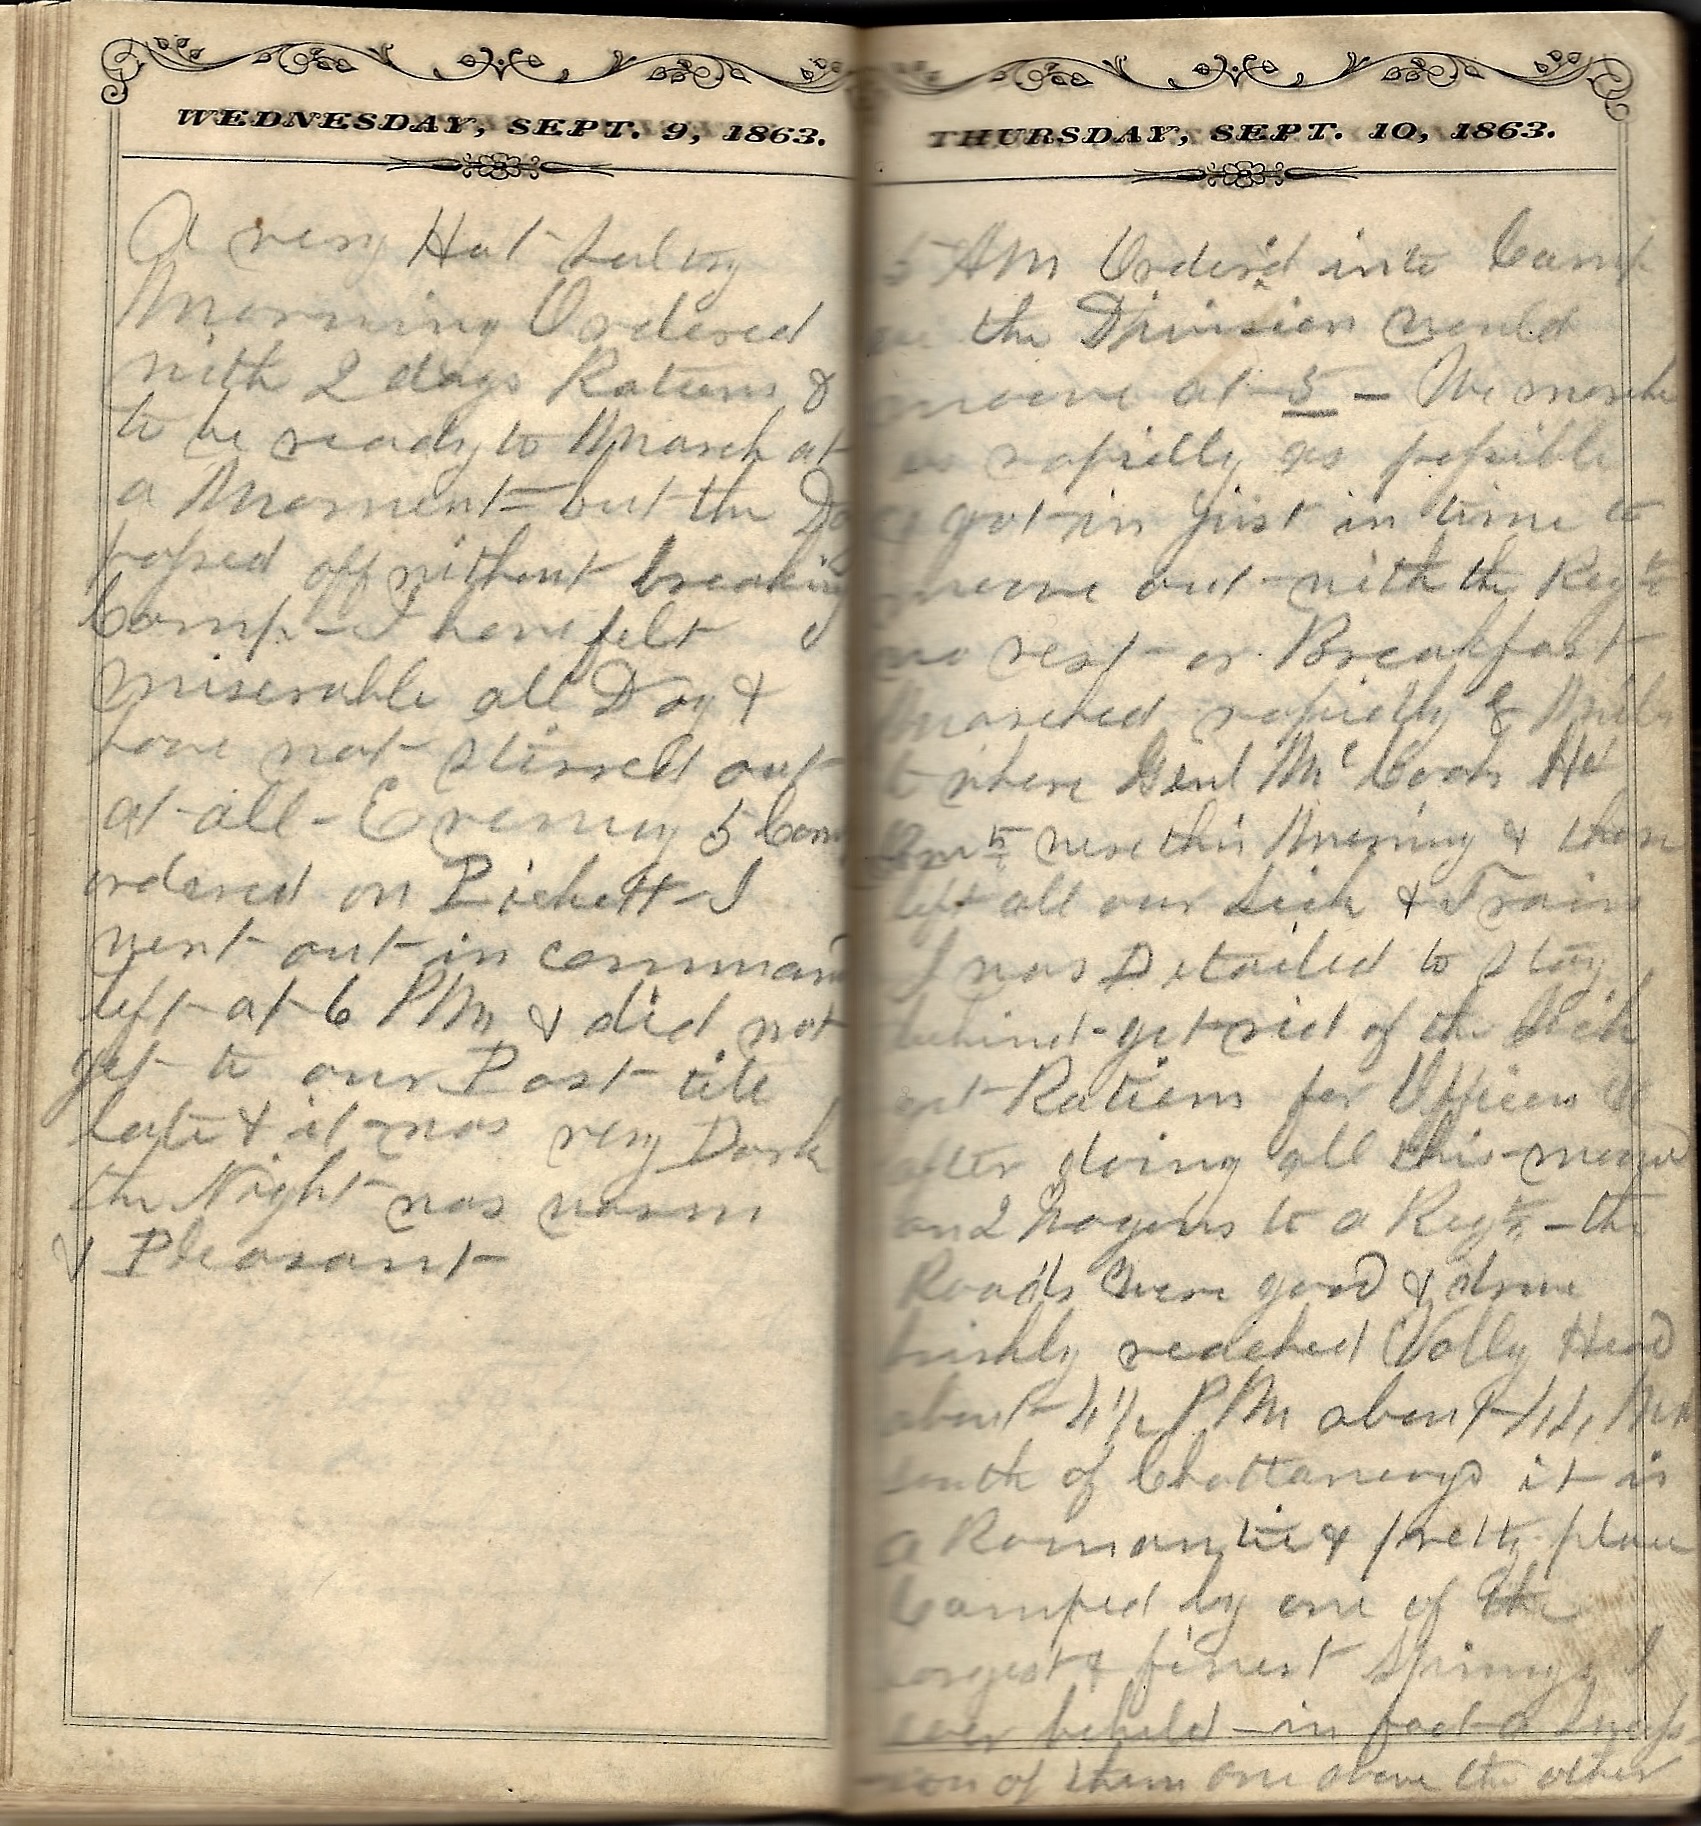 WEDNESDAY, SEPT. 9, 1863.
A very Hot Sultry
Morning Ordered
with 2 days Rations &
to be ready to March at
a Moment - but the Da
passed off without breaking
Camp - I have felt
miserable all Day &
have not stirred out
at all - Evening 5 Com
ordered on Pickett - I
went out in comman
left at 6 PM & did not
get to our Post till
late & it was very Dark
the Night was warm
& Pleasant
THURSDAY, SEPT. 10, 1863.
5 AM Order'd into Camp
the Division would
moove at 5 - We marche
as rapidly as possible
& got in just in time to
moove out with the Regt
no rest or Breakfast
Marched rapidly Miles
to where Genl McCooks Hd
Qurts were this Morning & there
left all our Sick & Train
I was Detailed to stay
behind - get rid of the Sick
get Rations for Officers &
after doing all this moovd
on 2 Wagons to a Regt - the
Roads were good & drove
briskly reached Vally Head
about 4 1/2 PM about
south of Chattanooga it is
a Romantic & pretty place
Camped by one of the
largest & finest Springs I
ever beheld - in fact a Suces-
sion of them one above the other